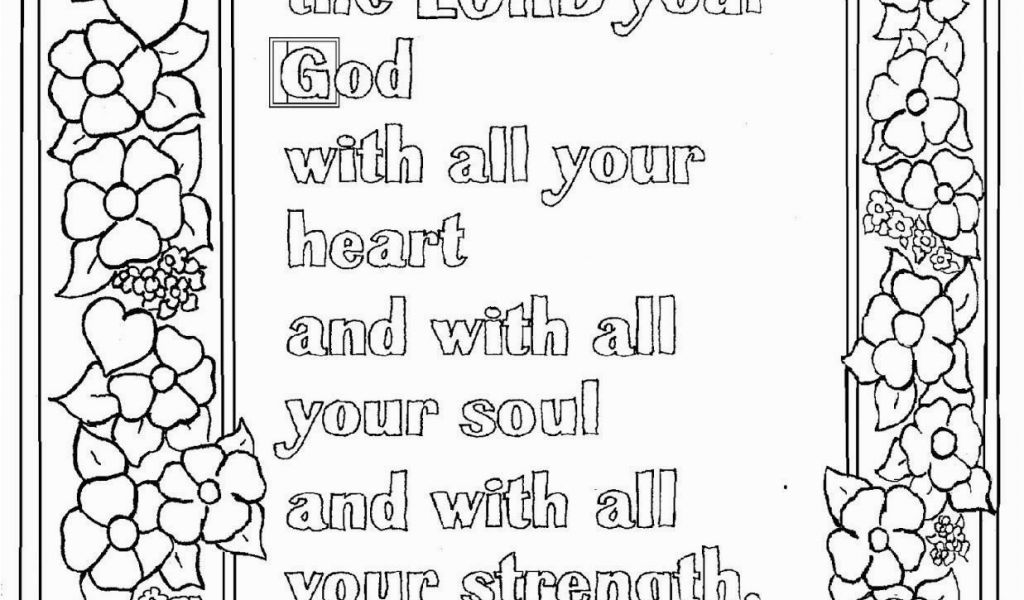 the LORD your
God
with all your
heart
and with all
your soul
and with all
your strength.